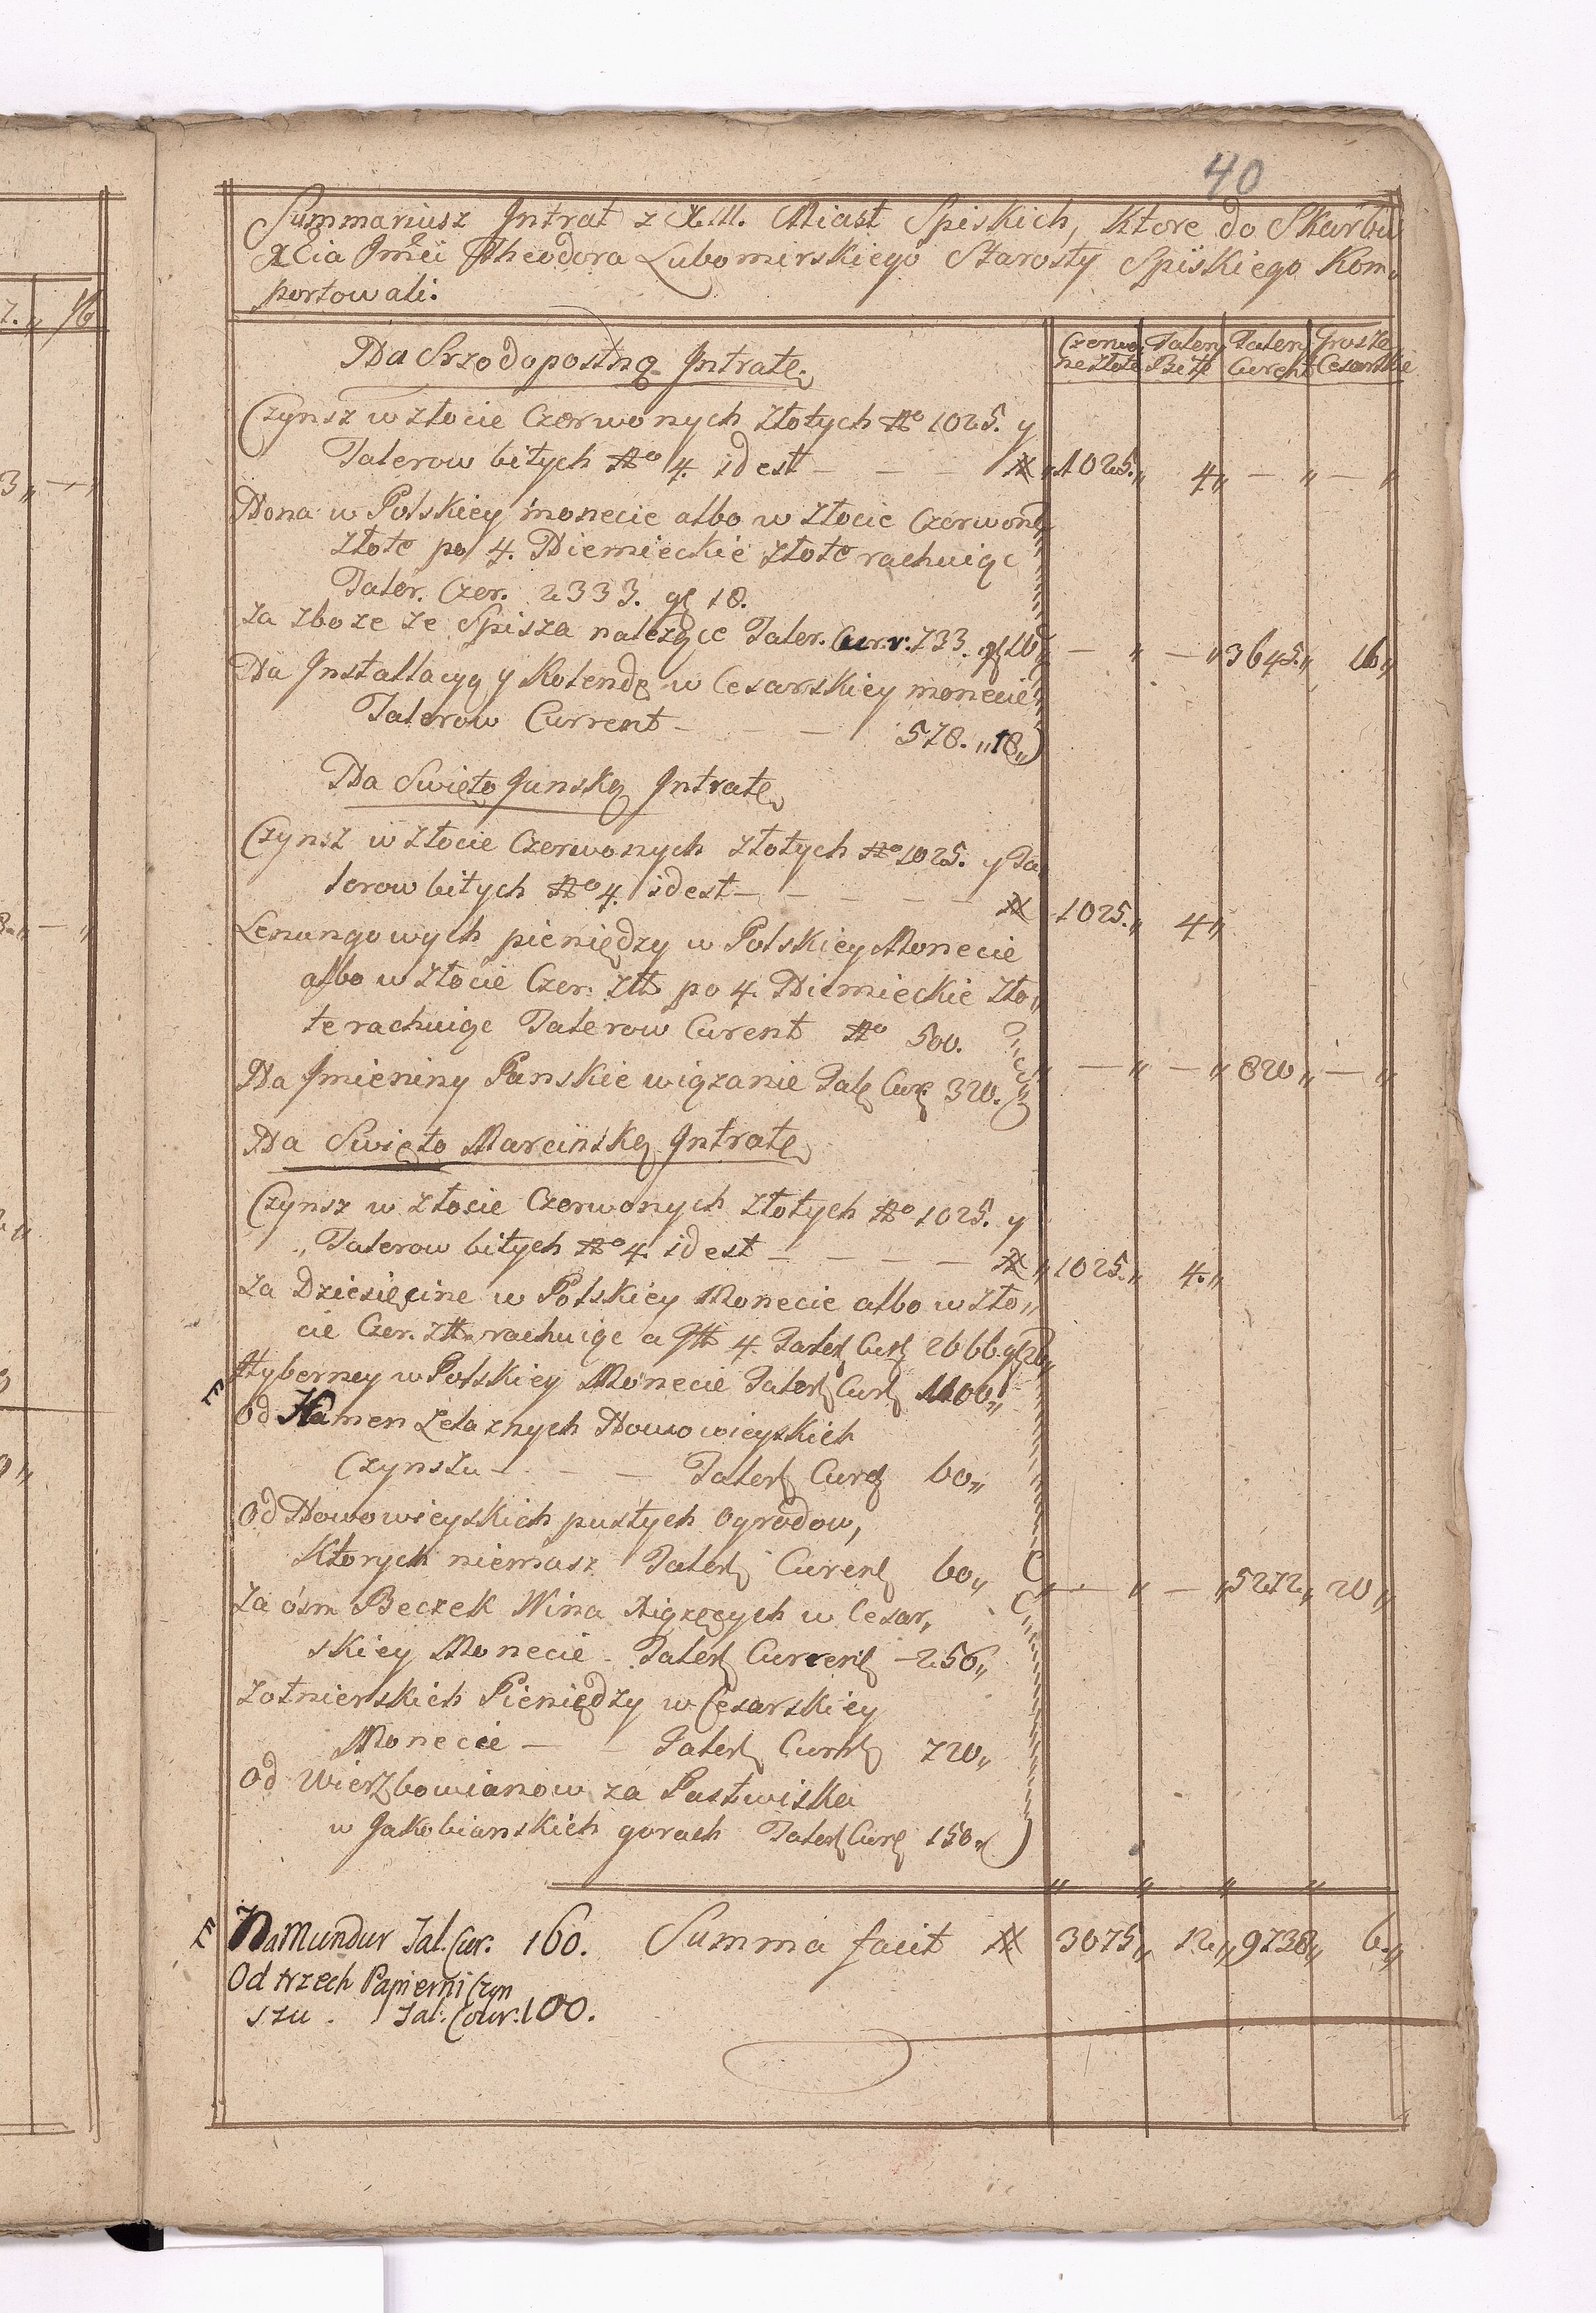 40
Summariusz Jntrat z XIII. Miast Spiskich, ktore do Skarbu
XCia Jmći Theodora Lubomirskiego Starosty Spiskiego Kom„
portowali.
Czerwo„ Talery Talery Grosze
ne złote Bite Curent Cesarskie
Na Srzodopostną Jntratę
Czynsz w złocie Czerwonych złotych No 1025. y
Talerow bitych No 4. idest — — — # „ 1025.„ 4„ — „ — „
Nona w Polskiey monecie albo w złocie Czerwone
złote po 4. Niemieckie złote rachuiąc
Taler. Czer. 2333. gl 18.
za zboze ze Spisza nalezące Taler. Curr. 733. gl 10 — „ — „ 3645.„ 16„
Na Jnstallacyą y Kolendę w Cesarskiey monecie
Talerow Current — — 578. „18„
Na Swięto Janską Jntratę
Czynsz w złocie Czerwonych złotych No 1025. y Ta
lerow bitych No 4. idest — — — — # 1025.„ 4„
Lenungowych pieniędzy w Polskiey Monecie
albo w złocie Czer. złł po 4. Niemieckie zło„
te rachuiąc Talerow Curent No 500.
Na Jmieniny Panskie wiązanie Tal Cur 320. — „ — „ 820„ — „
Na Swięto Marcinską Jntratę
Czynsz w złocie Czerwonych złotych No 1025. y
„Talerow bitych No 4. idest — — — # „ 1025.„ 4.„
za Dziesięcine w Polskiey Monecie albo w zło„
cie Czer. złł. rachuiąc a fll 4. Taler Cur 2666. gl 20„
Hyberney w Polskiey Monecie Taler Cur 1100„
Od Hamen Zelaznych Nowowieyskich
Czynszu — — — Taler Curę 60„
Od Nowowieyskich pustych Ogrodow,
Ktorych niemasz Taler Curen 60„ — „ — „5272„ 20„
za ósm Beczek Wina Xiążęcych w Cesar„
skiey Monecie — Taler Curren — 256„
Zołnierskich Pieniędzy w Cesarskiey
Monecie — — Taler Curr 720„
Od Wierzbowianow za Pastwiska
w Jakobianskich gorach Taler Cur 150„
Na Mundur Tal. Cur. 160. Summa facit # 3075„ 12„ 9738„ 6„
Od trzech Papierni Czyn
szu. Tal: Cour. 100.